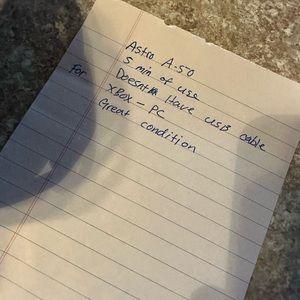 Astro A-50
5 min of use
Doesnt Have USB cable
For XBox - PC
Great condition